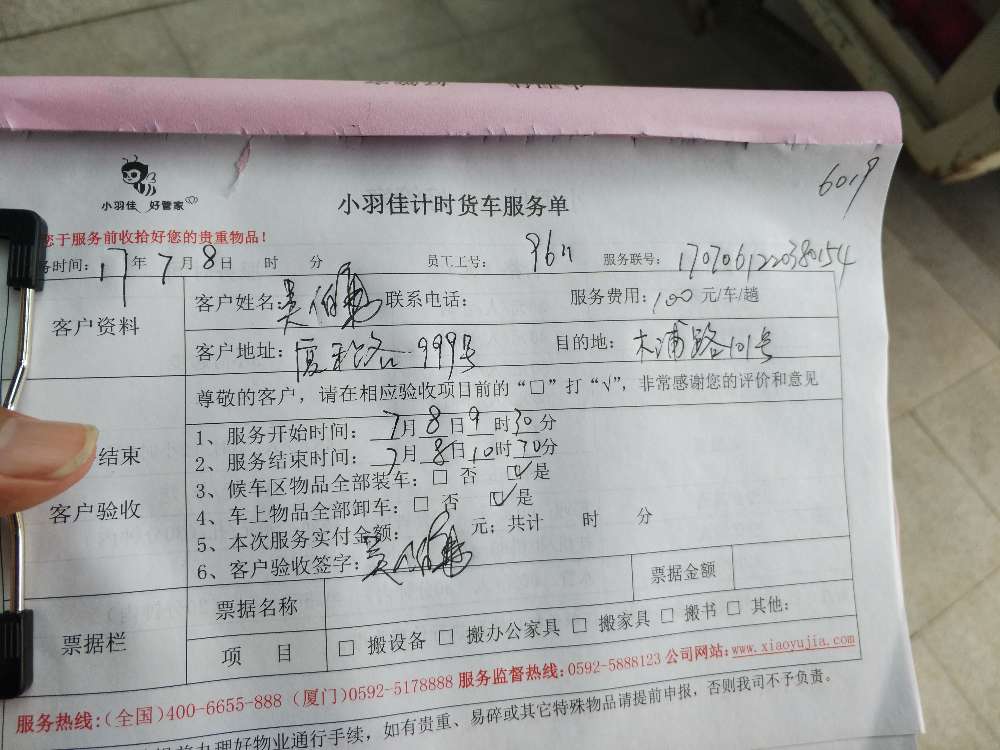 6019
小羽佳 好管家
小羽佳计时货车服务单
您于服务前收拾好您的贵重物品!
务时间: 17年7月8日 时 分 员工工号: 服务联号: 1707061220380154
客户资料
客户姓名: 吴伯 联系电话: 服务费用: 100 元/车/趟
客户地址: 999号 目的地: 木浦路101号
尊敬的客户，请在相应验收项目前的“□”打“√”，非常感谢您的评价和意见
结束
客户验收
1、服务开始时间: 7月8日9时30分
2、服务结束时间: 7月8日10时30分
3、候车区物品全部装车: □ 否 ☑ 是
4、车上物品全部卸车: □ 否 ☑ 是
5、本次服务实付金额: 元; 共计 时 分
6、客户验收签字: 吴伯
票据栏
票据名称 票据金额
项 目 □ 搬设备 □ 搬办公家具 □ 搬家具 □ 搬书 □ 其他:
服务热线:(全国)400-6655-888 (厦门)0592-5178888 服务监督热线: 0592-5888123 公司网站: www.xiaoyujia.com
办理好物业通行手续，如有贵重、易碎或其它特殊物品请提前申报，否则我司不予负责。